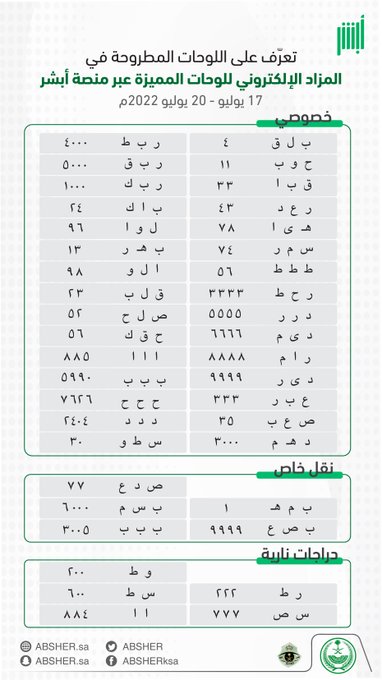 أبشر
تعرّف على اللوحات المطروحة في
المزاد الإلكتروني للوحات المميزة عبر منصة أبشر
17 يوليو - 20 يوليو 2022م
خصوصي
ب ل ق ٤ ر ب ط ٤٠٠٠
ح و ب ١١ ر ب ق ٥٠٠٠
ق ب ا ٣٣ ر ب ك ١٠٠٠
ر ع د ٤٣ ب ا ك ٢٤
هـ ى ا ٧٨ ل و ا ٩٦
س م ر ٧٤ ب هـ ر ١٣
ط ط ط ٥٦ ا ل و ٩٨
ر ح ط ٣٣٣٣ ق ل ب ٢٣
د ر ر ٥٥٥٥ ص ل ح ٥٢
د ى م ٦٦٦٦ ح ق ك ٥٦
ر ا م ٨٨٨٨ ا ا ا ٨٨٥
د ى ر ٩٩٩٩ ب ب ب ٥٩٩٠
ع ب ر ٣٣٣ ح ح ح ٧٦٢٦
ص ع ب ٣٥ د د د ٢٤٠٤
د هـ م ٣٠٠٠ س ط و ٣٠
نقل خاص
ص د ع ٧٧
ب م هـ ١ ب س م ٦٠٠٠
ب ص ع ٩٩٩٩ ب ب ب ٣٠٠٥
دراجات نارية
و ط ٢٠٠
ر ط ٢٢٢ س ط ٦٠٠
س ص ٧٧٧ ا ا ٨٨٤
ABSHER.sa ABSHER
ABSHER.sa ABSHERksa